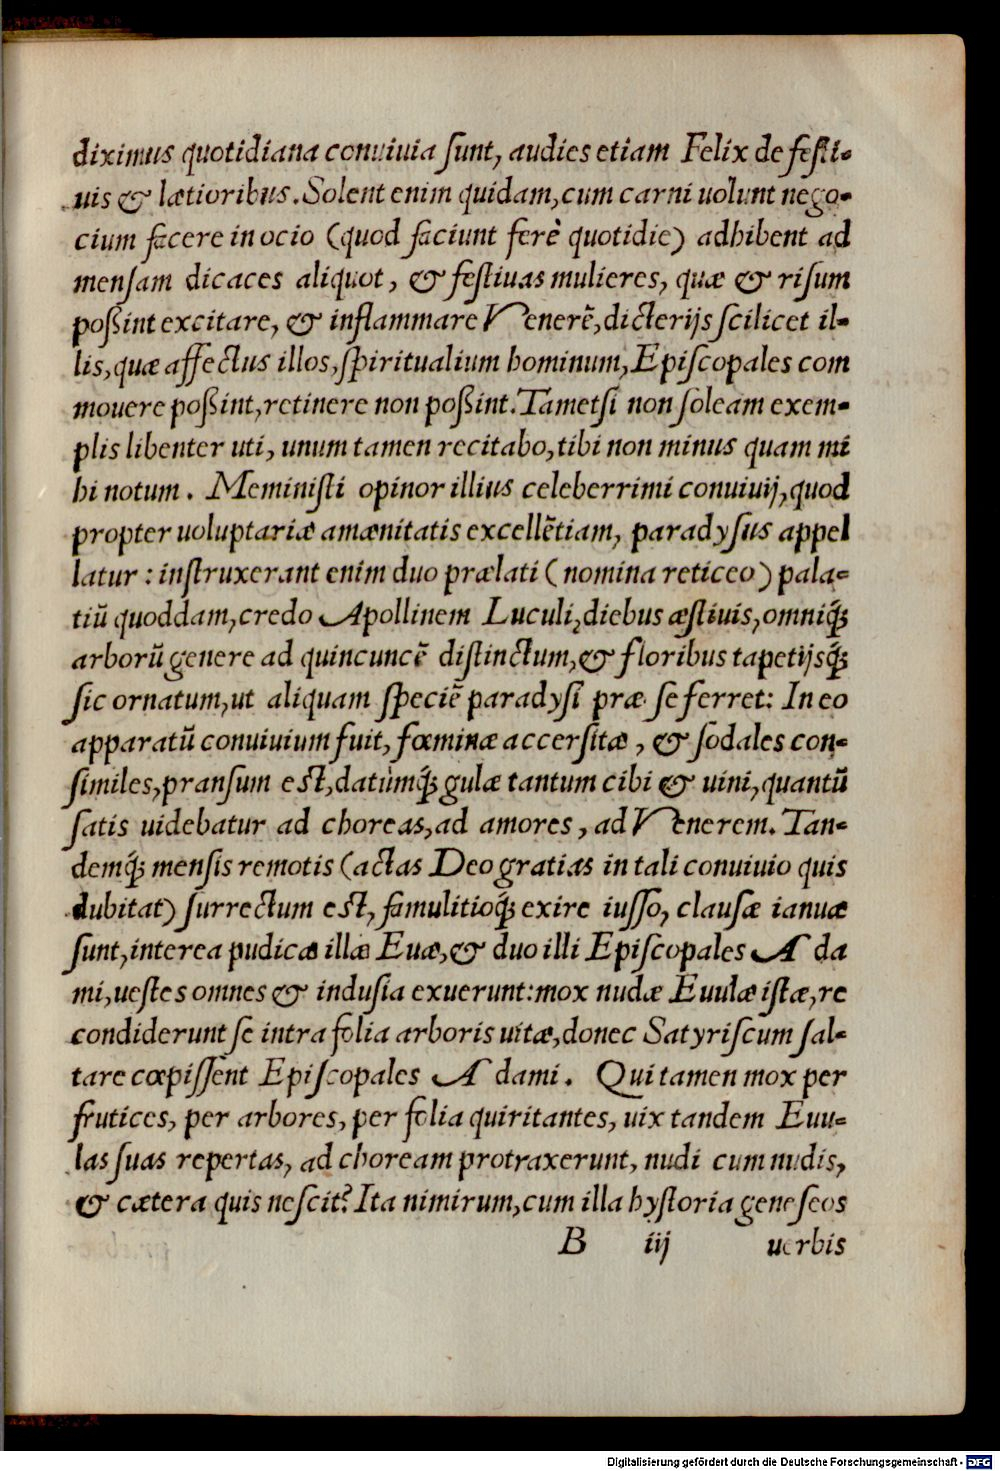 diximus quotidiana conuiuia sunt, audies etiam Felix de festi-
uis & lætioribus. Solent enim quidam, cum carni uolunt nego-
cium facere in ocio (quod faciunt ferè quotidie) adhibent ad
mensam dicaces aliquot, & festiuas mulieres, quæ & risum
poßint excitare, & inflammare Venerē, dicterijs scilicet il-
lis, quæ affectus illos, spiritualium hominum, Episcopales com
mouere poßint, retinere non poßint. Tametsi non soleam exem-
plis libenter uti, unum tamen recitabo, tibi non minus quam mi
hi notum. Meministi opinor illius celeberrimi conuiuij, quod
propter uoluptariæ amænitatis excellētiam, paradysus appel
latur: instruxerant enim duo prælati (nomina reticeo) pala-
tiū quoddam, credo Apollinem Luculi, diebus æstiuis, omniq́;
arborū genere ad quincuncē distinctum, & floribus tapetijsq́;
sic ornatum, ut aliquam speciē paradysi præ se ferret: In eo
apparatū conuiuium fuit, fœminæ accersitæ, & sodales con-
similes, pransum est, datúmq́; gulæ tantum cibi & uini, quantū
satis uidebatur ad choreas, ad amores, ad Venerem. Tan-
demq́; mensis remotis (actas Deo gratias in tali conuiuio quis
dubitat) surrectum est, famulitioq́; exire iusso, clausæ ianuæ
sunt, interea pudicæ illæ Euæ, & duo illi Episcopales Ada
mi, uestes omnes & indusia exuerunt: mox nudæ Euulæ istæ, re
condiderunt se intra folia arboris uitæ, donec Satyriscum sal-
tare cœpissent Episcopales Adami. Qui tamen mox per
frutices, per arbores, per folia quiritantes, uix tandem Euu-
las suas repertas, ad choream protraxerunt, nudi cum nudis,
& cætera quis nescit? Ita nimirum, cum illa hystoria geneseos
B iij uerbis
Digitalisierung gefördert durch die Deutsche Forschungsgemeinschaft - DFG